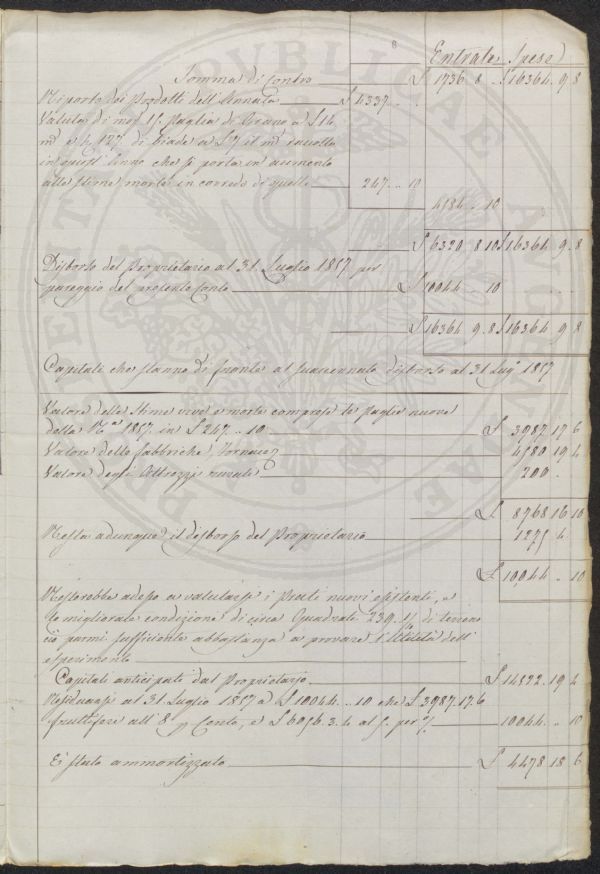 8
Entrate Spese
Somma di Contro £ 1736. 8 .. £ 16364. 9. 8
Riporto dei Prodotti dell'Annata £ 4337 .. ..
Valuta di mg. 15 paglia di Grano a £ 14
m. e £ 127 di Biade a £ 7 il m. raccolta
in quest'Anno che si porta in aumento
alle stime morte in corredo di quelle 247 .. 10
4584 .. 10
£ 6320 8 10 £ 16364 9. 8
Disborso del Proprietario al 31. Luglio 1857 per
pareggio del presente Conto £ 10044 .. 10
£ 16364. 9. 8 £ 16364 9 8
Capitali che stanno di fronte al suaccennato disborso al 31 Lug. 1857
Valore delle stime vive e morte comprese le paglie nuove
della 1857 in £ 247 .. 10 £ 3987. 17. 6
Valore delle fabbriche, Fornace 4580 19 4
Valore degli Attrezzi rurali 200 .
£ 8768 16 10
Resta adunque il disborso del Proprietario 1275 4
£ 10,044 .. 10
Resterebbe adesso a valutarsi i Prati nuovi esistenti, e
la migliorata condizione di circa Quadrati 239. di terreno
ciò parmi sufficiente abbastanza a provare l'Utilità dell'
esperimento
Capitale anticipato dal Proprietario £ 14522. 19 4
Residuansi al 31. Luglio 1857 a £ 10044. .. 10 che £ 3987. 17. 6
fruttifere all' 8 p Conto, e £ 6056. 3. 4 al 5. per % 10044 .. 10
E' stato ammortizzato £ 4478 18 6
PVBLICAE